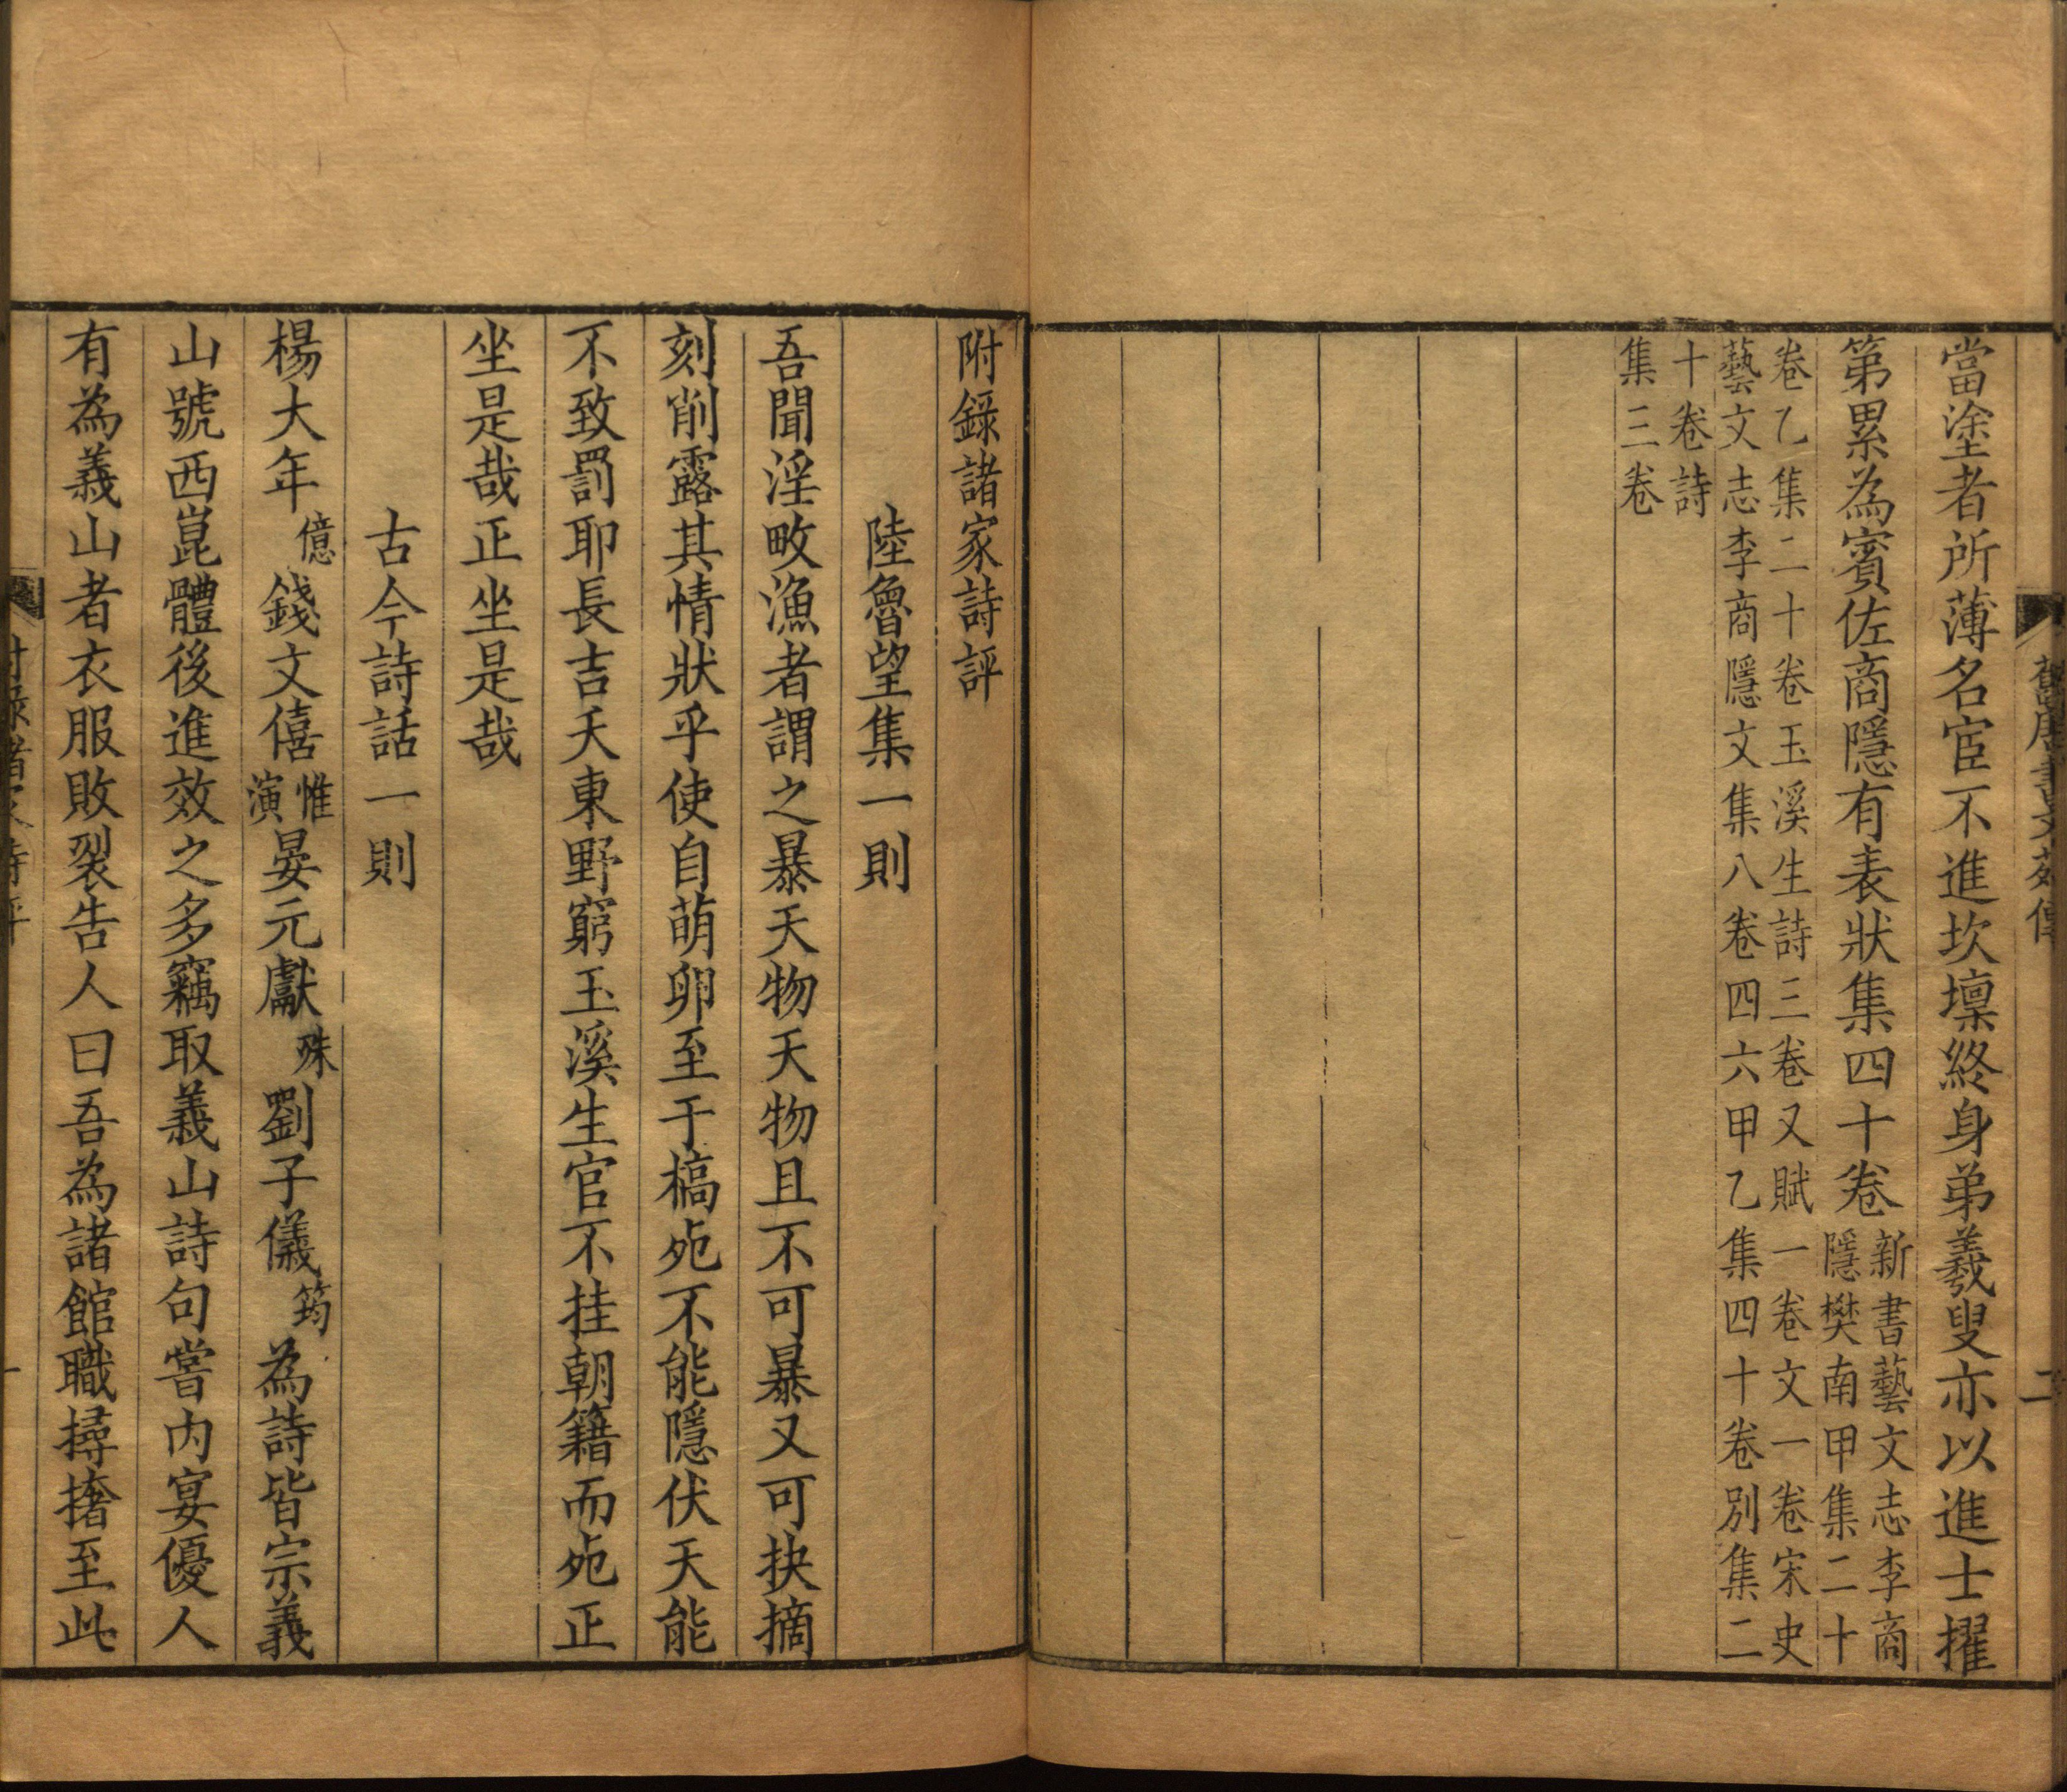 舊唐書文苑傳
二
當塗者所薄名宦不進坎壈終身弟羲叟亦以進士擢
第累為賓佐商隱有表狀集四十卷
新書藝文志李商
隱樊南甲集二十
卷乙集二十卷玉溪生詩三卷又賦一卷文一卷宋史
藝文志李商隱文集八卷四六甲乙集四十卷別集二
十卷詩
集三卷
附錄諸家詩評
陸魯望集一則
吾聞淫畋漁者謂之暴天物天物且不可暴又可抉摘
刻削露其情狀乎使自萌卵至于槁死不能隱伏天能
不致罰耶長吉夭東野窮玉溪生官不挂朝籍而死正
坐是哉正坐是哉
古今詩話一則
楊大年億錢文僖惟演晏元獻殊劉子儀筠為詩皆宗義
山號西崑體後進效之多竊取義山詩句嘗內宴優人
有為義山者衣服敗裂告人曰吾為諸館職撏撦至此
附錄諸家詩評
一